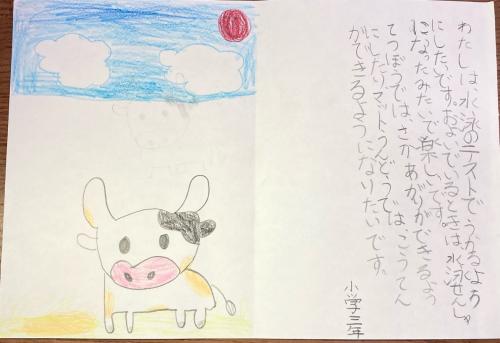 わたしは、水泳のテストでうかるよう
にしたいです。およいでいるときは、水泳せんしゅ
になったみたいで楽しいです。
てつぼうでは、さかあがりができるよう
にしたり、マットうんどうでは、こうてん
ができるようになりたいです。
小学三年